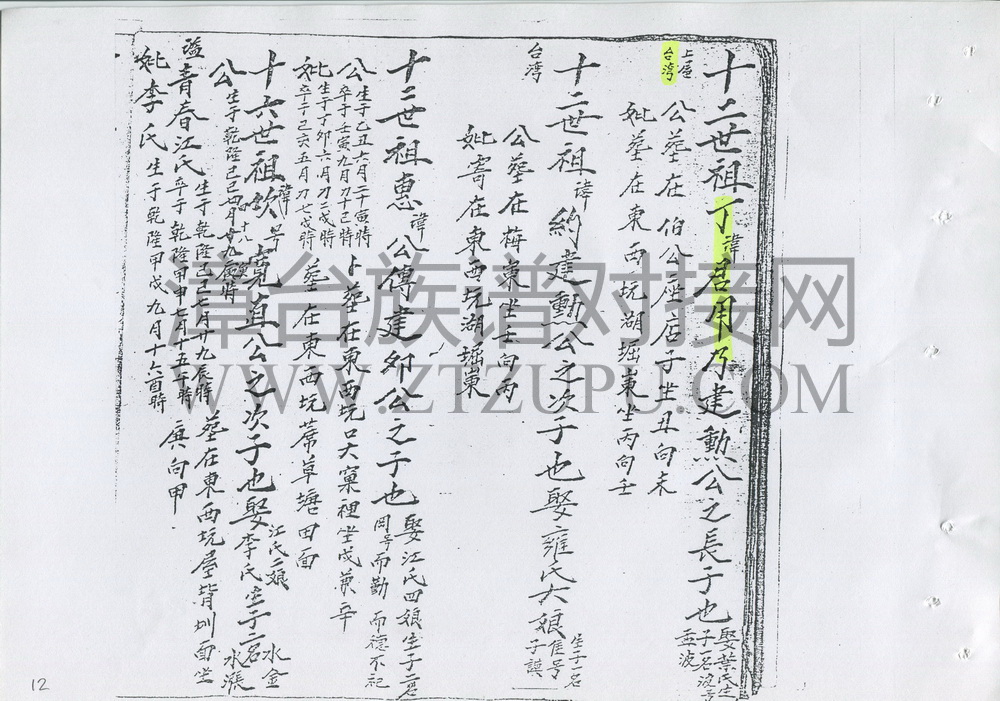 上屋
台湾
十二世祖丁諱君用乃建勲公之長子也
娶葉氏生
子一名
孟波
公葬在伯公座店子坐丑向未
妣葬在東西坑湖堀東坐丙向壬
台湾
十二世祖諱約建勲公之次子也娶雍氏大娘
生子一名
子謨
公葬在梅東坐壬向丙
妣寄在東西坑湖堀東
十二世祖惠諱公傳建卯公之子也
娶江氏四娘生子二名
同号而勤而德不記
公
生于乙丑六月二十寅時
卒于壬寅九月九十巳時
卜葬在東西坑口大窠裡坐戌兼辛
妣
生于丁卯六月刀二戌時
卒于己亥五月刀七戌時
葬在東西坑蓆草塘田面
十六世祖欽諱号寬直公之次子也娶
江氏二娘
李氏生子二名
水金
水漲
公
生于乾隆己巳四月廿九辰時
謚青春江氏
生于乾隆己巳七月廿九辰時
卒于乾隆甲申七月十五午時
葬在東西坑屋背圳面坐
庚向甲
妣李氏生于乾隆甲戌九月十六酉時
津台族谱对接网
WWW.ZTZUPU.COM
12